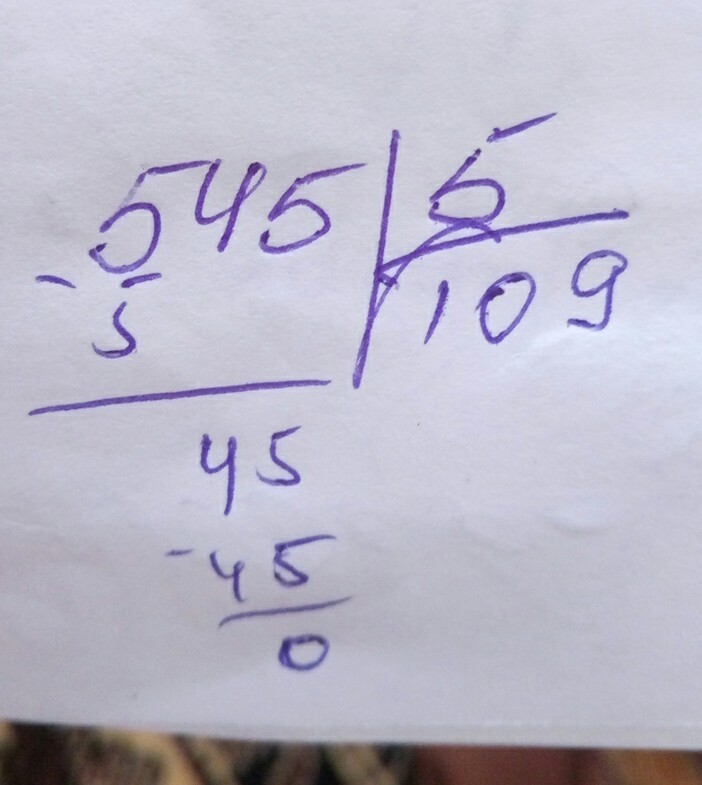 - 545 | 5
5 | 109
45
- 45
0